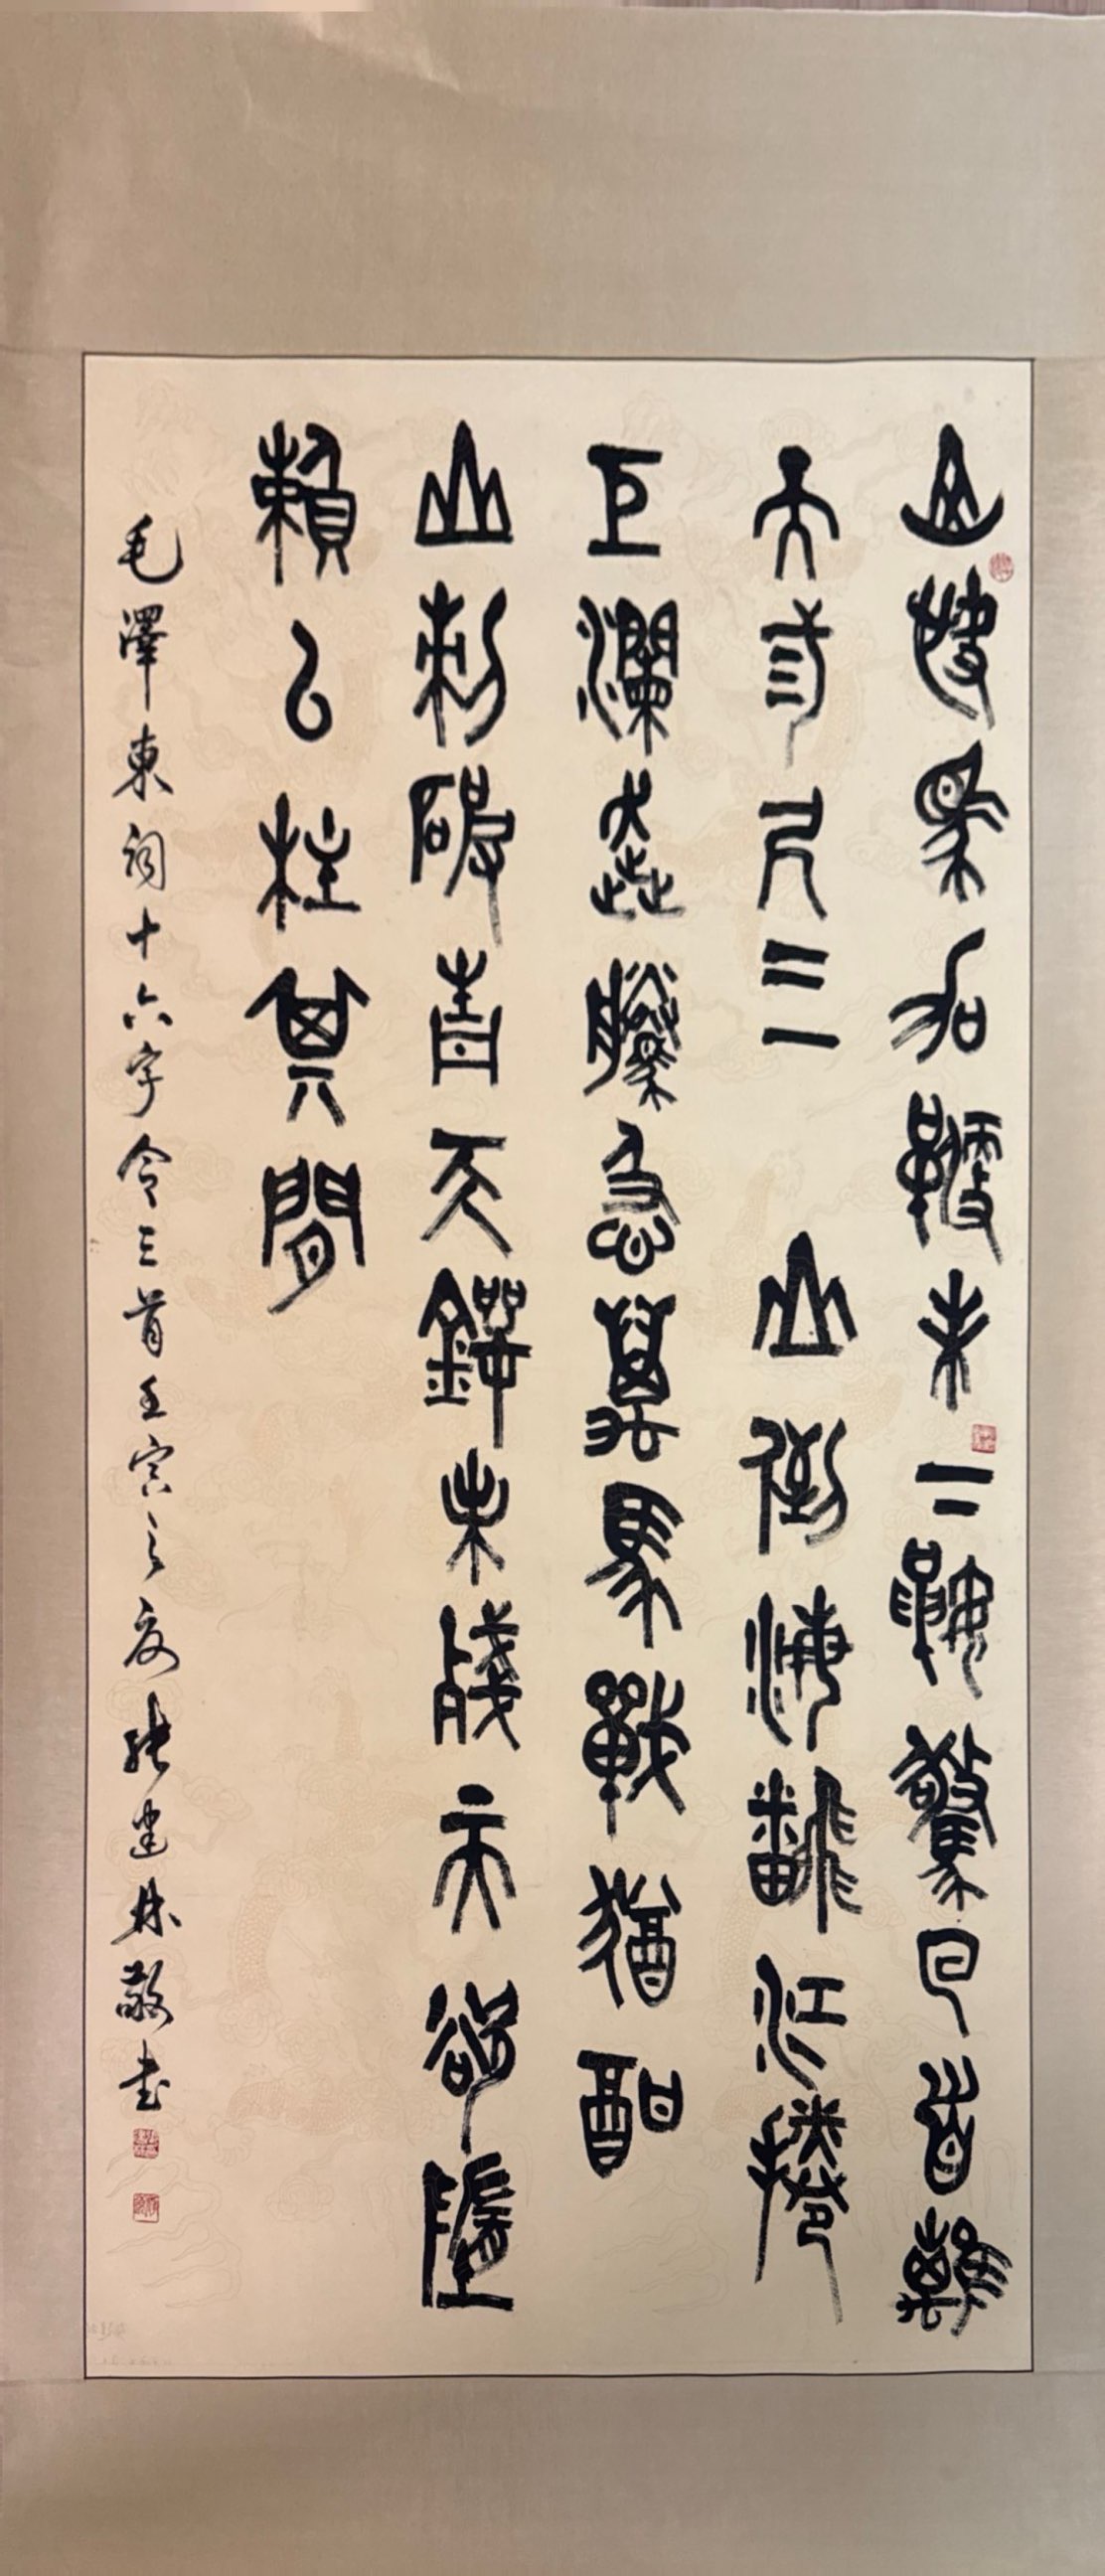 山快馬加鞭未下鞍驚回首離
天三尺三 山倒海翻江捲
巨瀾奔騰急萬馬戰猶酣
山刺破青天鍔未殘天欲墮
賴以柱其間
毛澤東詞十六字令三首壬寅之夏張建林敬書